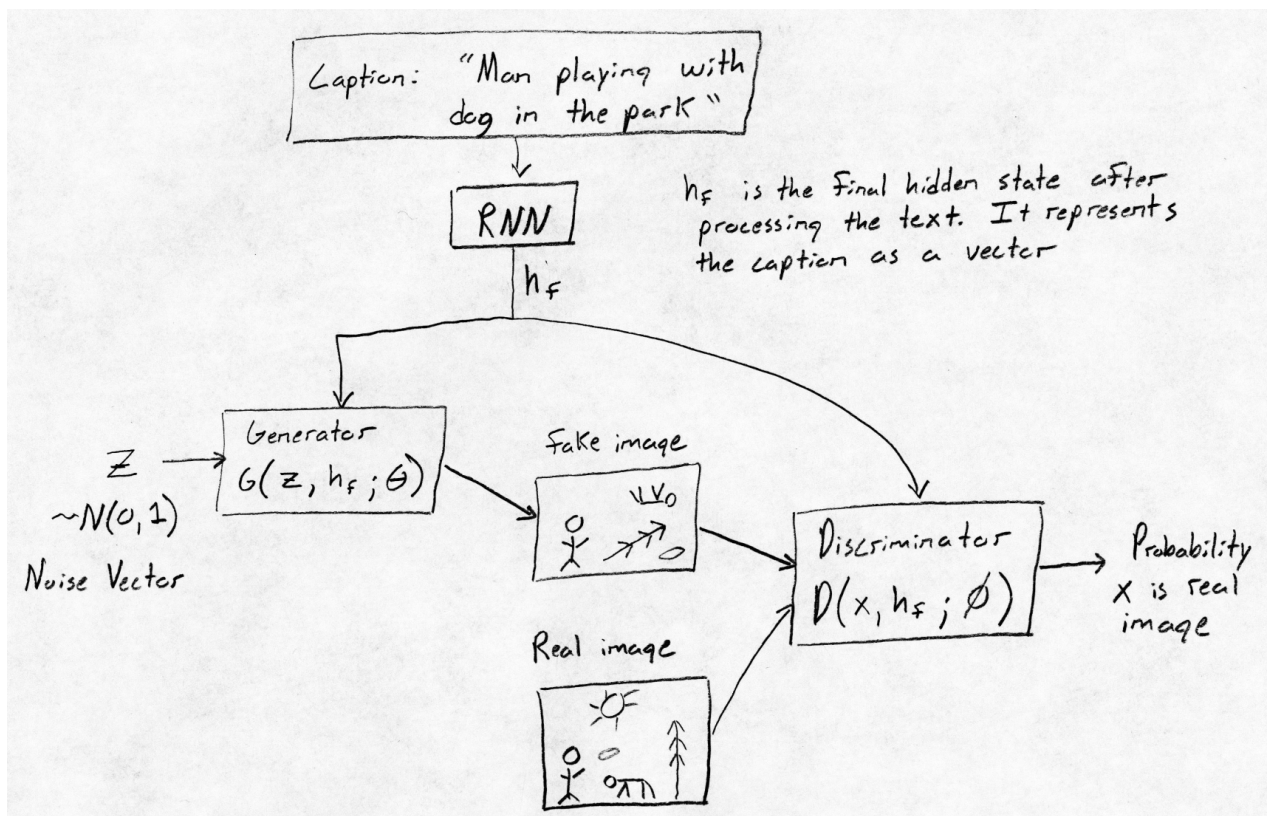 Caption: "Man playing with
dog in the park"
RNN
h_f is the final hidden state after
processing the text. It represents
the caption as a vector
h_f
Generator
G(z, h_f ; θ)
z
~N(0,1)
Noise Vector
Fake image
Discriminator
D(x, h_f ; ϕ)
Probability
x is real
image
Real image